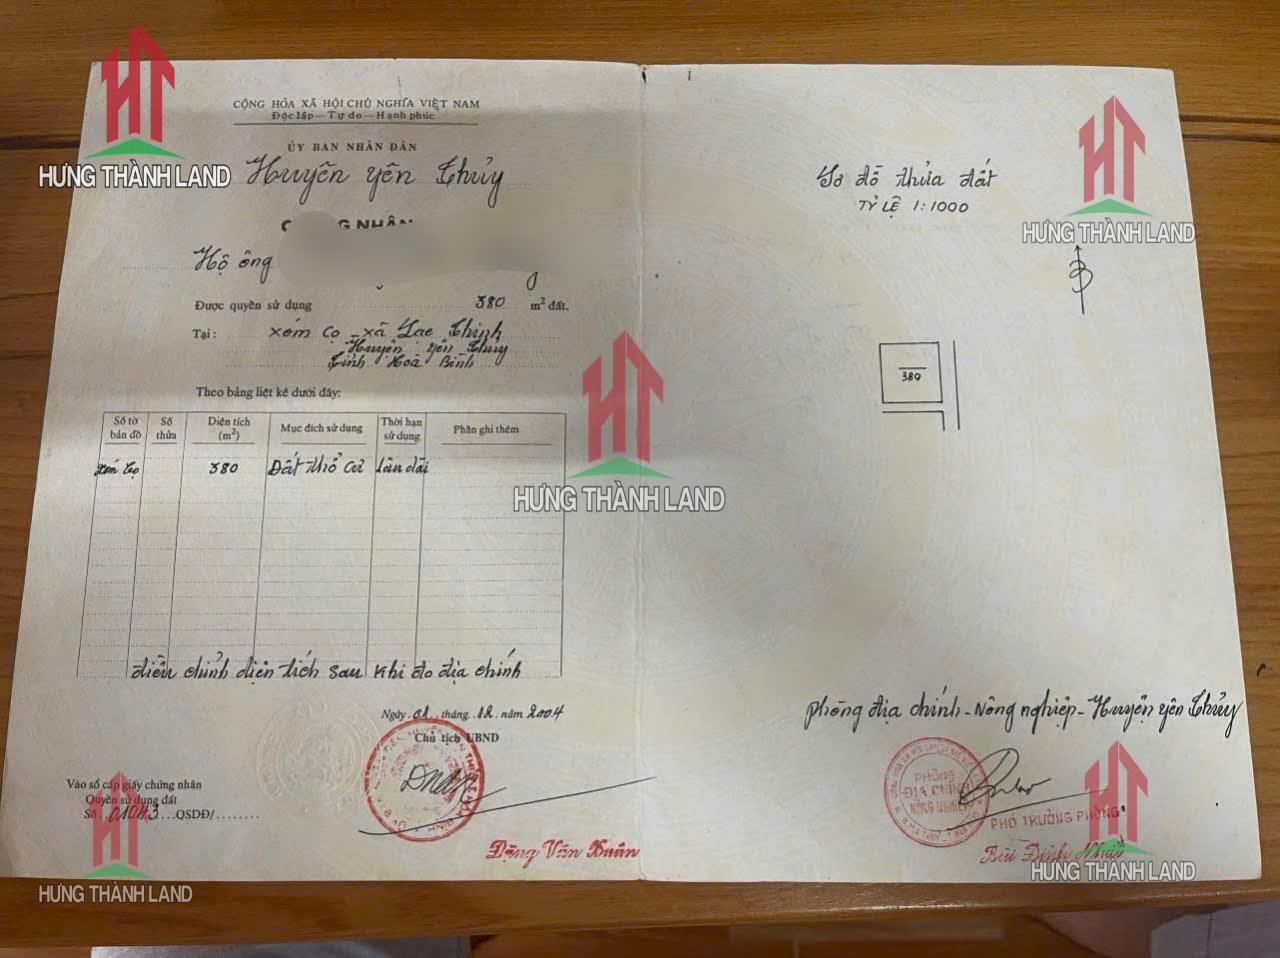 CỘNG HÒA XÃ HỘI CHỦ NGHĨA VIỆT NAM
Độc lập — Tự do — Hạnh phúc
ỦY BAN NHÂN DÂN
Huyện Yên Thủy
NHẬN
Hộ ông
Được quyền sử dụng 380 m² đất.
Tại: xóm Cọ xã Lạc Thịnh
Huyện Yên Thủy
Tỉnh Hoà Bình
Theo bảng liệt kê dưới đây:
Số tờ bản đồ Số thửa Diện tích (m²) Mục đích sử dụng Thời hạn sử dụng Phần ghi thêm
xóm Cọ 380 Đất thổ cư lâu dài
điều chỉnh diện tích sau khi đo địa chính
Ngày 01 tháng 12 năm 2004
Chủ tịch UBND
Đặng Văn Xuân
Vào sổ cấp giấy chứng nhận
Quyền sử dụng đất
Số 01043 QSDĐ/
Sơ đồ thửa đất
TỶ LỆ 1:1000
380
Phòng địa chính - Nông nghiệp - Huyện Yên Thủy
PHÒNG
ĐỊA CHÍNH
NÔNG NGHIỆP
PHÓ TRƯỞNG PHÒNG
Bùi Đình
HT
HƯNG THÀNH LAND
HT
HƯNG THÀNH LAND
HT
HƯNG THÀNH LAND
HT
HƯNG THÀNH LAND
HT
HƯNG THÀNH LAND